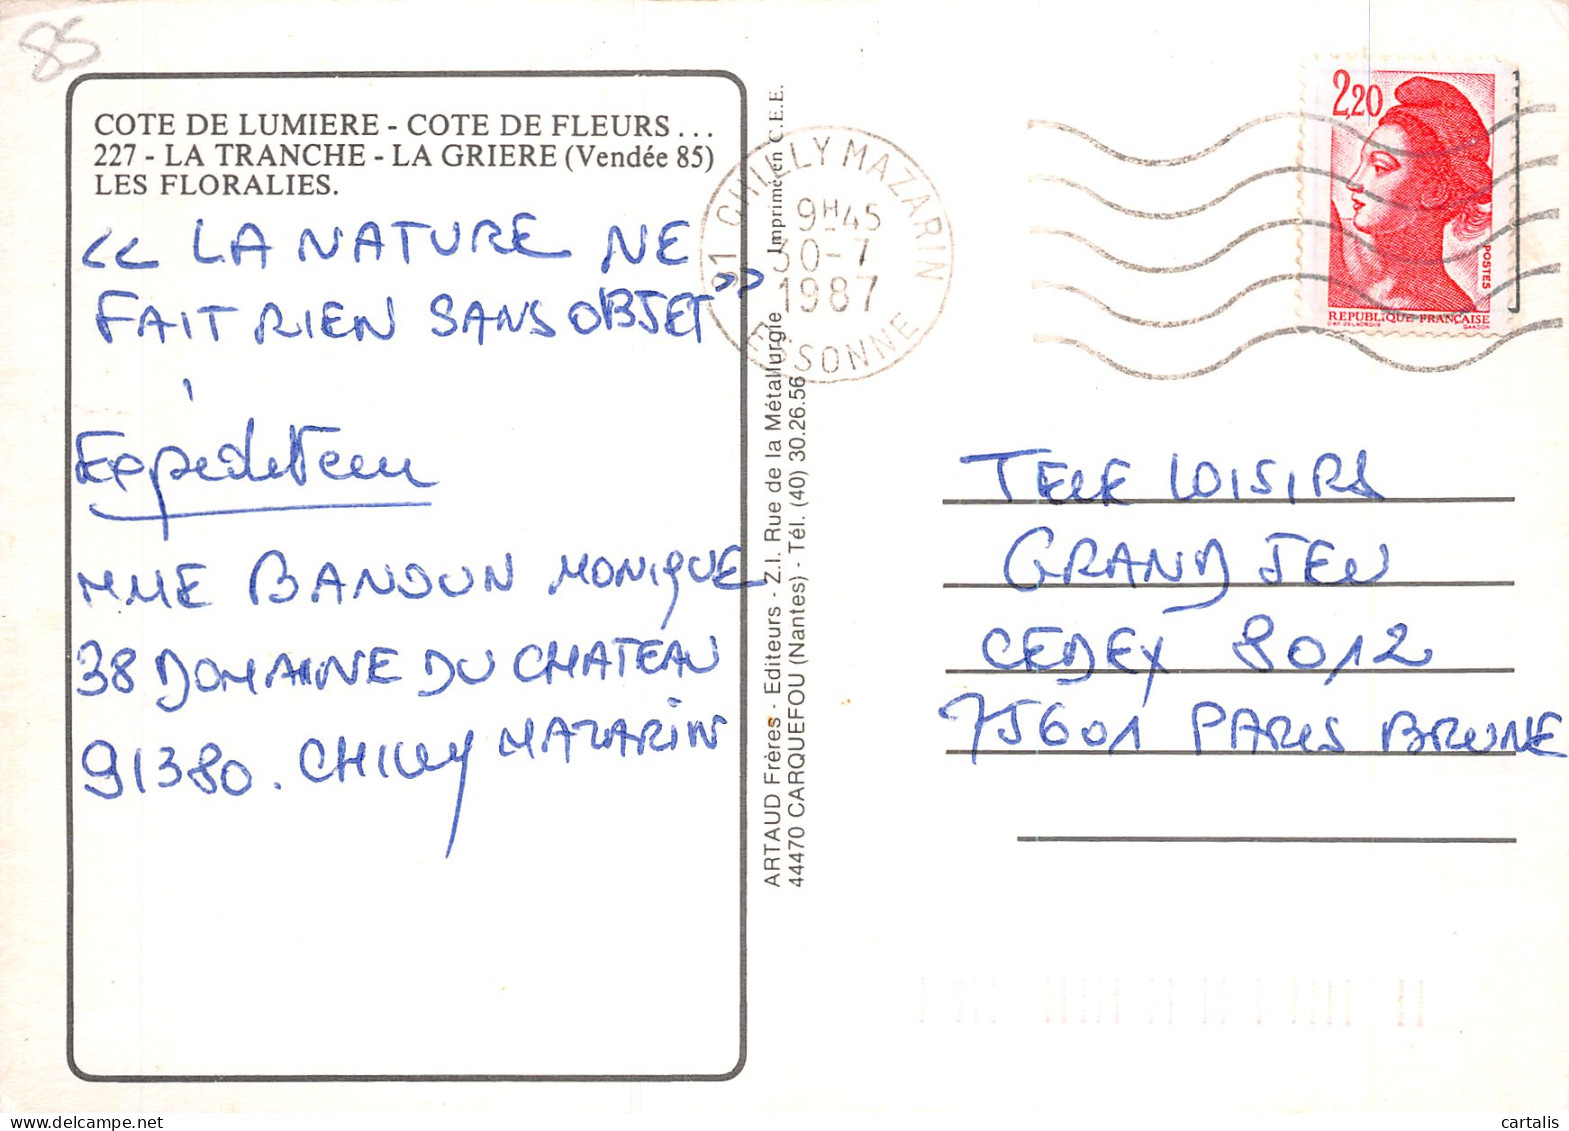 85
COTE DE LUMIERE - COTE DE FLEURS...
227 - LA TRANCHE - LA GRIERE (Vendée 85)
LES FLORALIES.
<< LA NATURE NE
FAIT RIEN SANS OBJET >>
Expediteur
MME BANDUN MONIQUE
38 DOMAINE DU CHATEAU
91380. CHILLY MAZARIN
ARTAUD Frères - Editeurs - Z.I. Rue de la Métallurgie Imprimé en C.E.E.
44470 CARQUEFOU (Nantes) - Tél. (40) 30.26.56
91 CHILLY MAZARIN
9H45
30-7
1987
ESSONNE
2,20
POSTES
REPUBLIQUE FRANÇAISE
D'AP. DELACROIX GANDON
TELE LOISIRS
GRAND JEU
CEDEX 8012
75601 PARIS BRUNE
cartalis